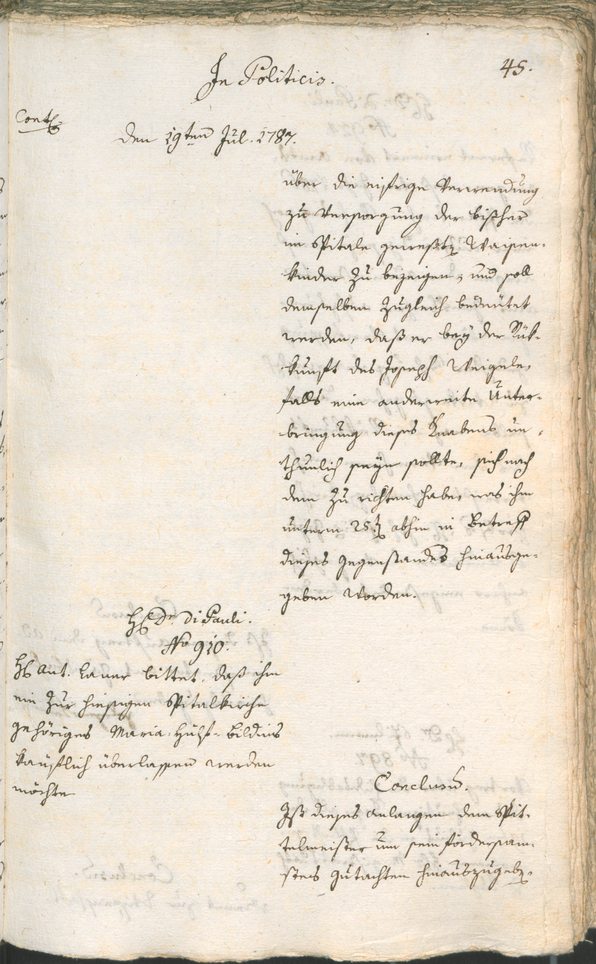 In Politicis.
45.
Cont:
den 19ten Jul. 1787.
über die eifrige Verwendung
zu Versorgung der bisher
im Spitale geweßten Waisen-
kinder zu bezeigen, und soll
demselben zugleich bedeutet
werden, daß er bey der Rük-
kunft des Joseph Weigele,
falls eine anderweite Unter-
bringung dieses Knabens un-
thunlich seyn sollte, sich nach
dem zu richten habe, was ihm
unterm 25t abhin in Betreff
dieses Gegenstandes hinausge-
geben worden.
H. Dr. di Pauli.
No 910.
H. Ant. Laner bittet, daß ihm
ein zur hiesigen Spitalkirche
gehöriges Maria-Hülf-Bildnis
käuflich überlassen werden
möchte
Conclusum.
Ist dieses Anlangen dem Spit-
telmeister um sein fördersam-
stes Gutachten hinauszugeben.